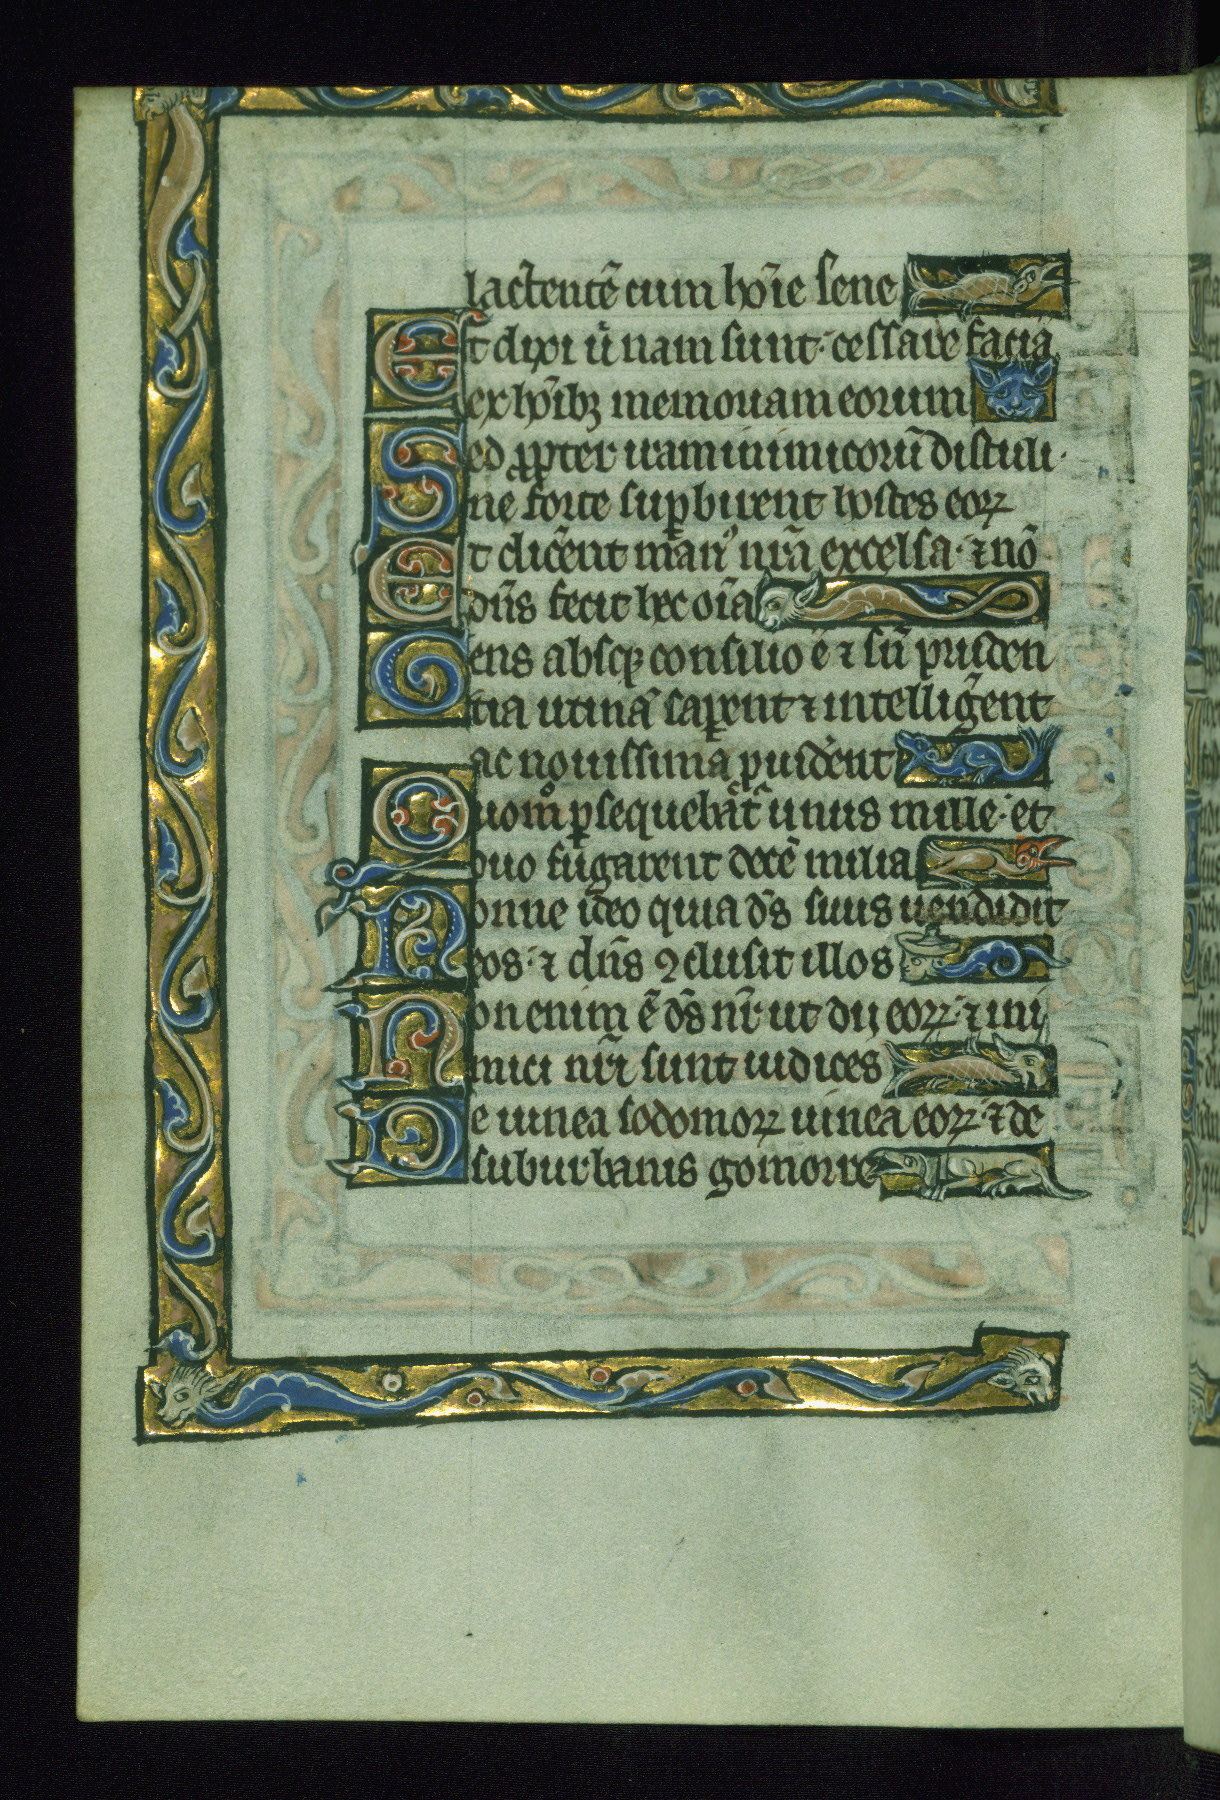 lactentē cum hoīe sene
Et dixi ubinam sunt· cessare faciā
ex hoībꝫ memoriam eorum
Sed ꝓpter iram inimicorū distuli·
ne forte supbirent hostes eoꝝ
Et dicerent man᾽ nrā excelsa· ⁊ nō
dn̄s fecit hec oīa
Gens absqꝫ consilio ē ⁊ sn̄ pruden
tia utinā saperent ⁊ intelligerent
ac nouissima ꝓuiderent
Quom̊ ꝑsequebat᷑ unus mille· et
duo fugarent decē milia
Nonne ideo quia ds̄ suus uendidit
eos· ⁊ dn̄s ꝯclusit illos
Non enim ē ds̄ nr̄ ut dii eoꝝ· ⁊ ini
mici nr̄i sunt iudices
De uinea sodomoꝝ uinea eoꝝ· ⁊ de
suburbanis gomorre